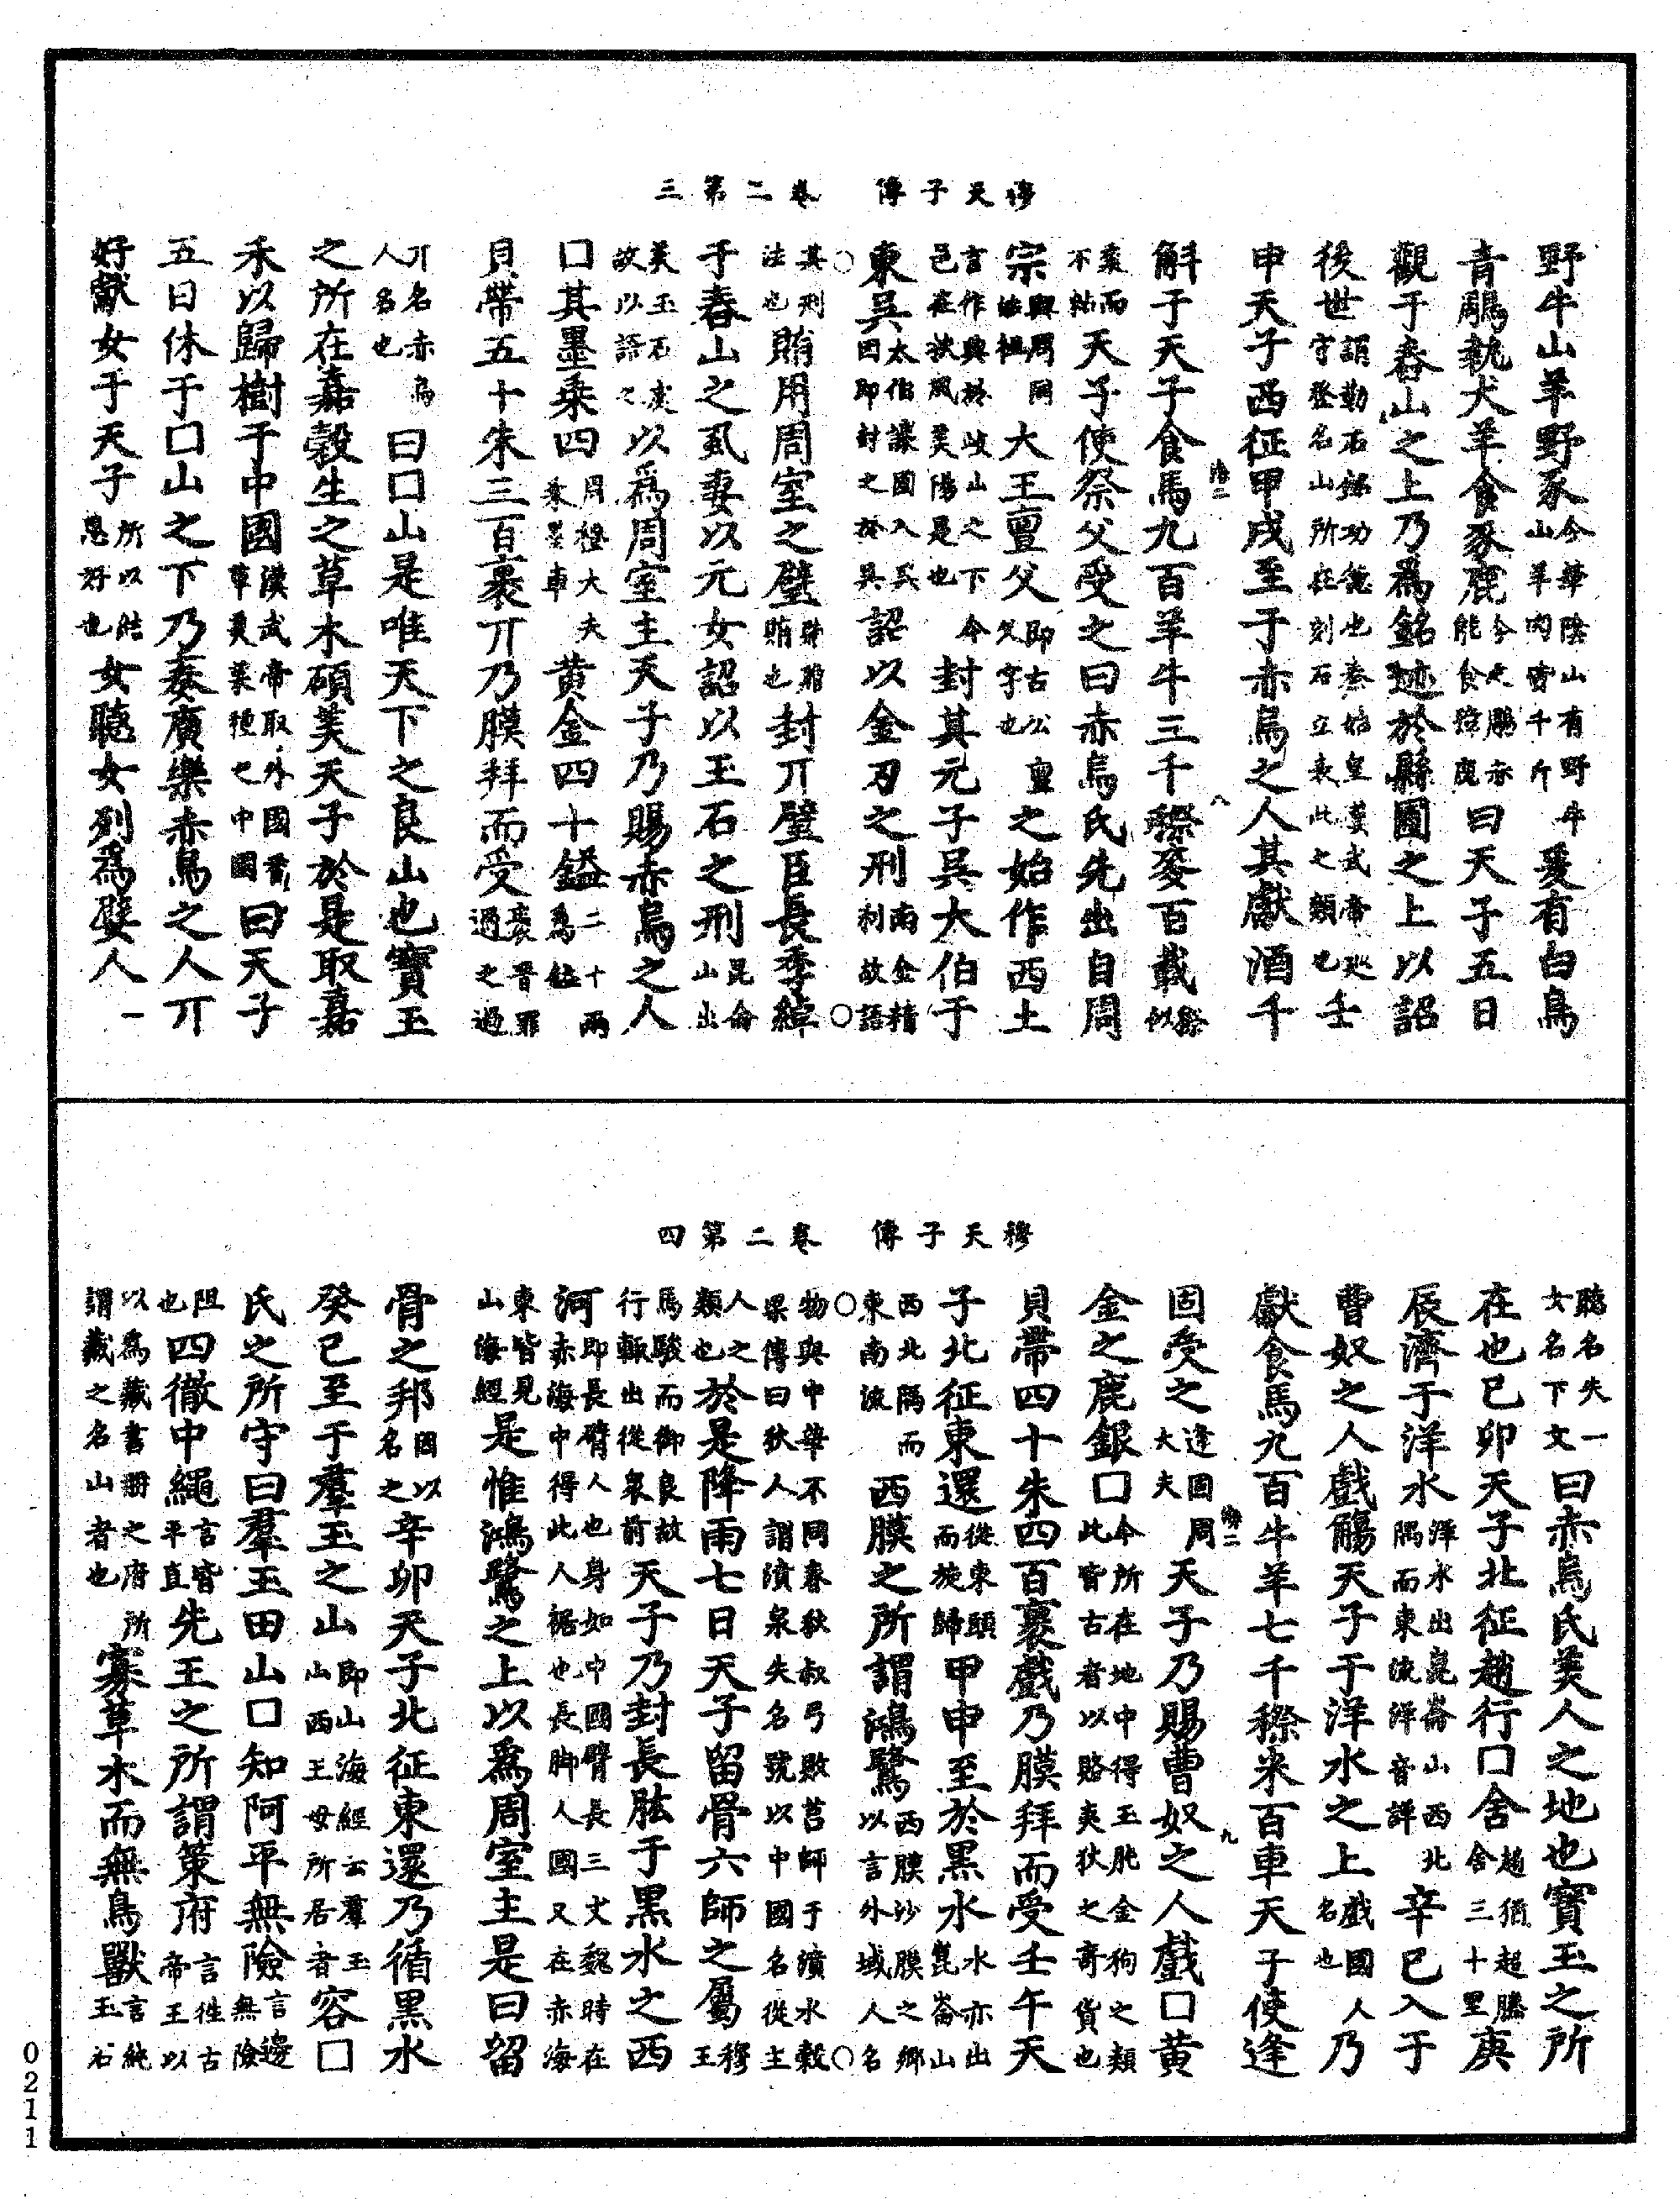 穆天子傳　卷二第三
野牛山羊野豕今華陰山有野牛山羊肉皆千斤爰有白鳥
青鵰執犬羊食豕鹿今之鵰亦能食獐鹿曰天子五日
觀于舂山之上乃爲銘迹於縣圃之上以詔
後世謂勒石銘功德也秦始皇漢武帝巡守登名山所在刻石立表此之類也壬
申天子西征甲戌至于赤烏之人其獻酒千
斛于天子食馬九百羊牛三千穄麥百載穄似
黍而不粘天子使祭父受之曰赤烏氏先出自周
宗與周同始祖大王亶父即古公亶父字也之始作西土
言作興於岐山之下今邑在扶風美陽是也封其元子吳大伯于
東吳太伯讓國入吳因即封之於吳詔以金刃之刑南金精利故語
其刑法也賄用周室之璧封丌璧臣長季綽
于舂山之虱妻以元女詔以玉石之刑昆侖山出
美玉石處故以語之以爲周室主天子乃賜赤烏之人
口其墨乘四周禮大夫乘墨車黄金四十鎰二十兩爲鎰
貝帶五十朱三百裹丌乃膜拜而受褒晋罪過之過
丌名赤烏人名也曰口山是唯天下之良山也寶玉
之所在嘉穀生之草木碩美天子於是取嘉
禾以歸樹于中國漢武帝取外國香草美菜種之中國曰天子
五日休于口山之下乃奏廣樂赤烏之人丌
好獻女于天子所以結恩好也女聽女列爲嬖人一
穆天子傳　卷二第四
聽名失一女名下文曰赤烏氏美人之地也寶玉之所
在也己卯天子北征趙行口舍趙猶超騰舍三十里庚
辰濟于洋水洋水出崑崙山西北隅而東流洋音詳辛巳入于
曹奴之人戲觴天子于洋水之上戲國人名也乃
獻食馬九百牛羊七千穄米百車天子使逢
固受之逢固周大夫天子乃賜曹奴之人戲口黄
金之鹿銀口今所在地中得玉肫金狗之類此皆古者以賂夷狄之奇貨也
貝帶四十朱四百裹戲乃膜拜而受壬午天
子北征東還從東頭而旋歸甲申至於黑水水亦出崑崙山
西北隅而東南流西膜之所謂鴻鷺西膜沙膜之鄉以言外域人名
物與中華不同春秋叔弓敗莒師于濆水穀梁傳曰狄人謂濆泉失名號以中國名從主
人之類也於是降雨七日天子留骨六師之屬穆王
馬駿而御良故行輒出從衆前天子乃封長肱于黑水之西
河即長臂人也身如中國臂長三丈魏時在赤海中得此人裾也長脚人國又在赤海
東皆見山海經是惟鴻鷺之上以爲周室主是曰留
骨之邦因以名之辛卯天子北征東還乃循黑水
癸巳至于羣玉之山即山海經云羣玉山西王母所居者容口
氏之所守曰羣玉田山口知阿平無險言邊無險
阻也四徹中繩言皆平直先王之所謂策府言徃古帝王以
以爲藏書冊之府所謂藏之名山者也寡草木而無鳥獸言純玉石
0211